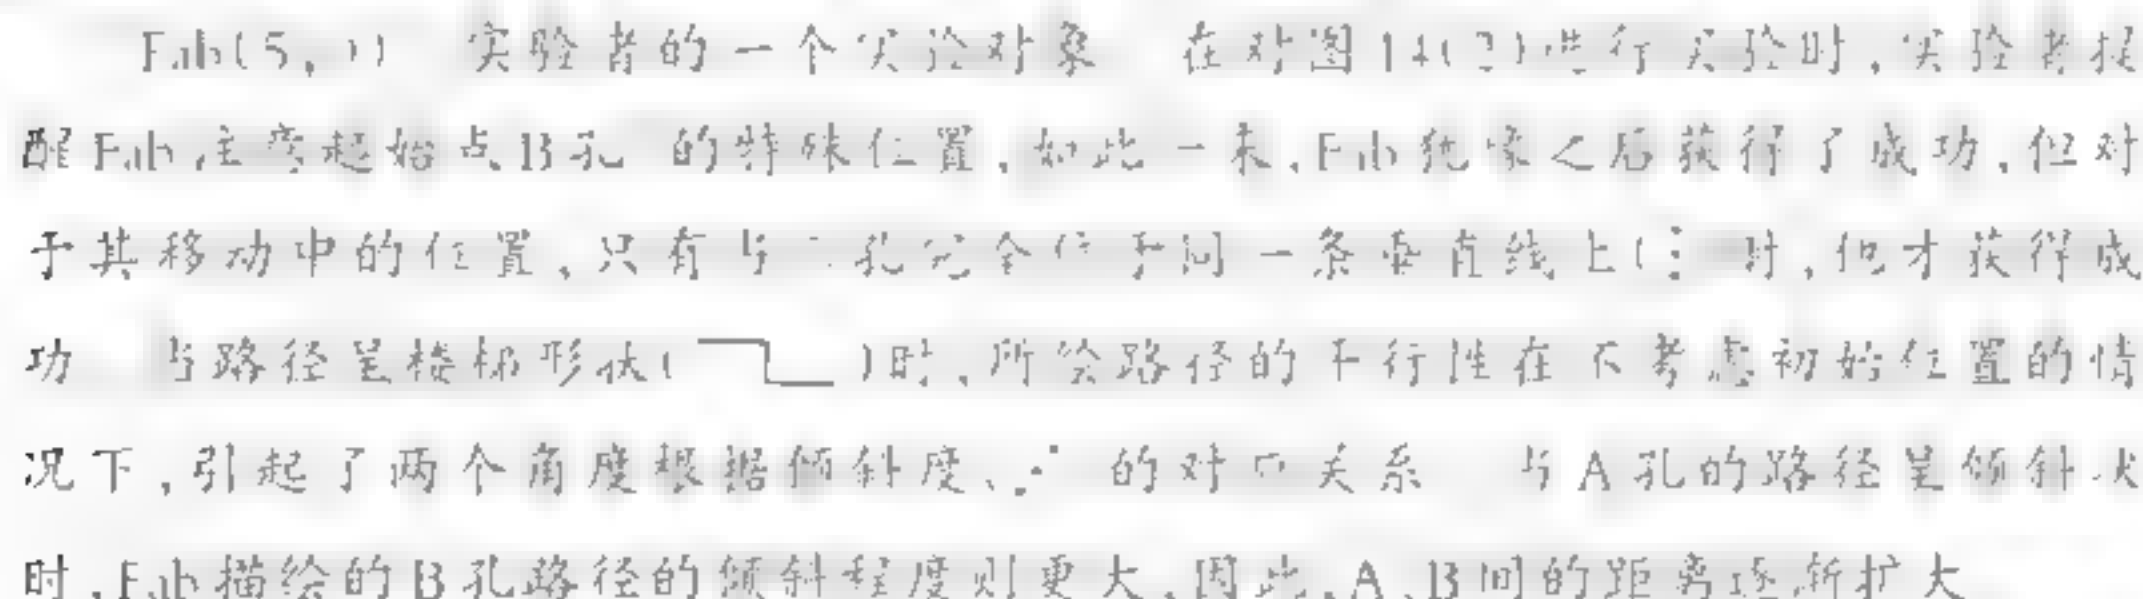 Fab(5, 实验者的一个实验对象 在对图14(2)进行实验时,实验者提
醒Fab注意起始点B孔 的特殊位置,如此一来,Fab 之后获得了成功,但对
于其移动中的位置,只有当二孔完全位于同一条垂直线上(⋮ 时,他才获得成
功 当路径呈楼梯形状( )时,所绘路径的平行性在不考虑初始位置的情
况下,引起了两个角度根据倾斜度、 的对应关系 当A孔的路径呈倾斜状
时,Fab描绘的B孔路径的倾斜程度则更大,因此,A、B间的距离逐渐扩大